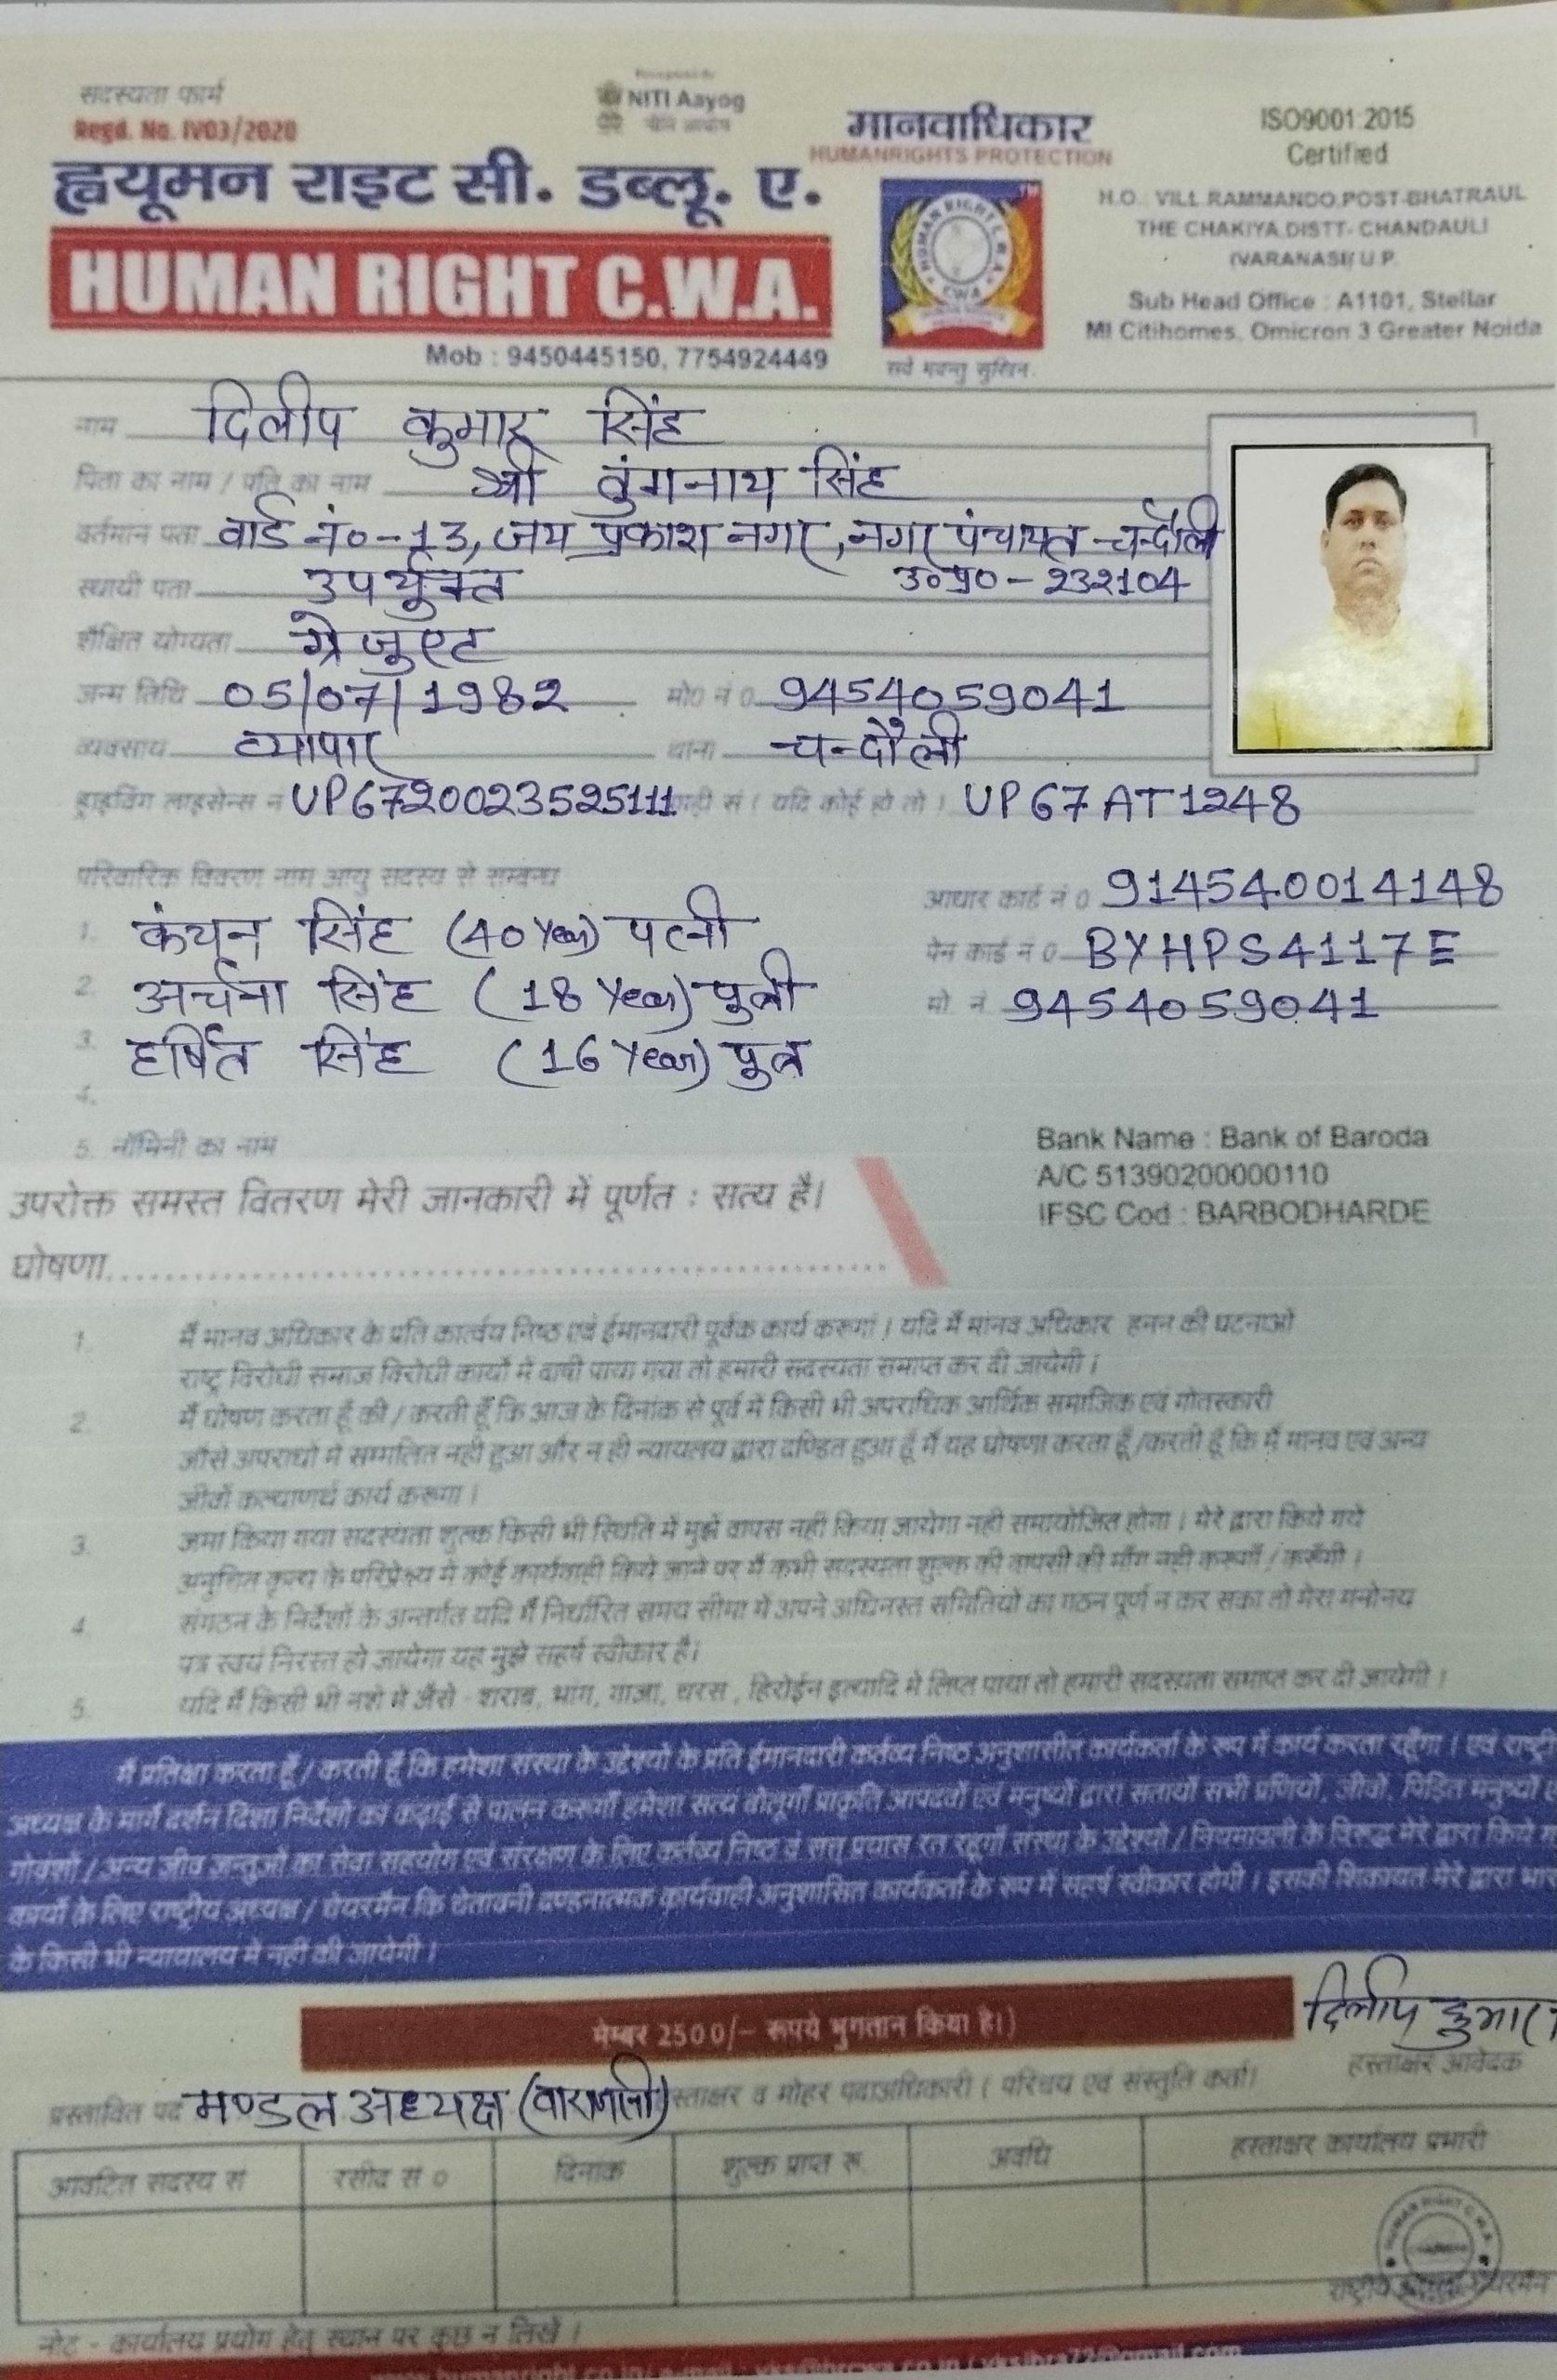 सदस्यता फार्म
Regd. No. IV03/2020
NITI Aayog
नीति आयोग
मानवाधिकार
HUMANRIGHTS PROTECTION
ISO9001:2015
Certified
ह्वयूमन राइट सी. डब्लू. ए.
HUMAN RIGHT C.W.A.
Mob : 9450445150, 7754924449
सर्वे भवन्तु सुखिन.
H.O. VILL.RAMMANDO,POST-BHATRAUL
THE CHAKIYA,DISTT- CHANDAULI
(VARANASI) U.P.
Sub Head Office : A1101, Stellar
MI Citihomes, Omicron 3 Greater Noida
नाम दिलीप कुमार सिंह
पिता का नाम / पति का नाम श्री तुंगनाथ सिंह
वर्तमान पता वार्ड नं०-13, जय प्रकाश नगर, नगर पंचायत-चन्दौली
उ०प्र०-232104
स्थायी पता उपर्युक्त
शैक्षित योग्यता ग्रेजुएट
जन्म तिथि 05/07/1982 मो0 नं 0 9454059041
व्यवसाय व्यापार थाना चन्दौली
ड्राइविंग लाइसेन्स नं UP6720023525111 गाड़ी सं ( यदि कोई हो तो ) UP67AT1248
परिवारिक विवरण नाम आयु सदस्य से सम्बन्ध
1. कंचन सिंह (40 Year) पत्नी
2. अर्चना सिंह (18 Year) पुत्री
3. हर्षित सिंह (16 Year) पुत्र
4.
5. नॉमिनी का नाम
आधार कार्ड नं 0 914540014148
पेन कार्ड नं 0 BYHPS4117E
मो नं 9454059041
Bank Name : Bank of Baroda
A/C 51390200000110
IFSC Cod : BARBODHARDE
उपरोक्त समस्त वितरण मेरी जानकारी में पूर्णत : सत्य है।
घोषणा
1. मैं मानव अधिकार के प्रति कार्तव्य निष्ठ एवं ईमानदारी पूर्वक कार्य करुगां । यदि मैं मानव अधिकार हनन की घटनाओ
राष्ट्र विरोधी समाज विरोधी कार्यो में वाषी पाया गया तो हमारी सदस्यता समाप्त कर दी जायेगी ।
2. मैं घोषण करता हूँ की / करती हूँ कि आज के दिनांक से पूर्व मे किसी भी अपराधिक आर्थिक समाजिक एवं गोतस्कारी
जौसे अपराधो मे सम्मलित नही हुआ और न ही न्यायलय द्वारा दण्डित हुआ हूँ मैं यह घोषणा करता हूँ /करती हूँ कि मैं मानव एवं अन्य
जीवों कल्याणर्थ कार्य करूगा ।
3. जमा किया गया सदस्यता शुल्क किसी भी स्थिति में मुझे वापस नही किया जायेगा नही समायोजित होगा । मेरे द्वारा किये गये
अनुचित कृत्य के परिप्रेक्ष्य मे कोई कार्यवाही किये जाने पर मै कभी सदस्यता शुल्क की वापसी की माँग नही करूगाँ / करूँगी ।
4. संगठन के निर्देशों के अन्तर्गत यदि मैं निर्धारित समय सीमा में अपने अधिनस्त समितियो का गठन पूर्ण न कर सका तो मेरा मनोनय
पत्र स्वयं निरस्त हो जायेगा यह मुझे सहर्ष स्वीकार है।
5. यदि मैं किसी भी नशे मे जैसे - शराब, भांग, गाजा, चरस , हिरोईन इत्यादि मे लिप्त पाया तो हमारी सदस्यता समाप्त कर दी जायेगी ।
मैं प्रतिक्षा करता हूँ / करती हूँ कि हमेशा संस्था के उद्देश्यों के प्रति ईमानदारी कर्तव्य निष्ठ अनुशासीत कार्यकर्ता के रूप में कार्य करता रहूँगा । एवं राष्ट्री
अध्यक्ष के मार्ग दर्शन दिशा निर्देशो का कढ़ाई से पालन करूगाँ हमेशा सत्य बोलूगाँ प्राकृति आपदवों एवं मनुष्यों द्वारा सतायों सभी प्रणियों, जीवो, पिड़ित मनुष्यों
गोवंशो / अन्य जीव जन्तुओ का सेवा सहयोग एवं संरक्षण के लिए कर्तव्य निष्ठ वं सत्त प्रयास रत रहूगाँ संस्था के उद्देश्यो / नियमावली के विरूद्ध मेरे द्वारा किये
कार्यो के लिए राष्ट्रीय अध्यक्ष / चेयरमैन कि चेतावनी दण्डनात्मक कार्यवाही अनुशासित कार्यकर्ता के रूप में सहर्ष स्वीकार होगी । इसकी शिकायत मेरे द्वारा भार
के किसी भी न्यायालय मे नही की जायेगी ।
मेम्बर 2500/- रूपये भुगतान किया है।)
दिलीप कुमार
हस्ताक्षर आवेदक
प्रस्तावित पद मण्डल अध्यक्ष (वाराणसी) हस्ताक्षर व मोहर पदाअधिकारी ( परिचय एवं संस्तुति कर्ता।
आवटित सदस्य सं रसीद सं 0 दिनांक शुल्क प्राप्त रू. अवधि हस्ताक्षर कार्यालय प्रभारी
HUMAN RIGHT C.W.A.
राष्ट्रीय
नोट - कार्यालय प्रयोग हेतु स्थान पर कुछ न लिखें ।